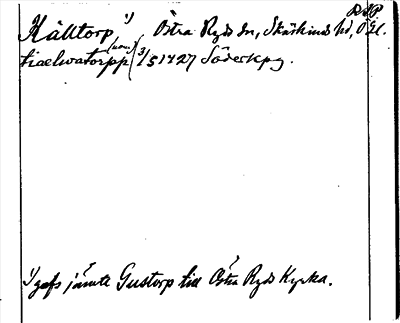 R.A.P.
Källtorp,¹⁾ Östra Ryds sn, Skärkinds hd, Ögl.
(nom.)
tiaelwatorpp 3/5 1427 Söderkpg.
¹⁾ gafs jämte Gustorp till Östra Ryds Kyrka.